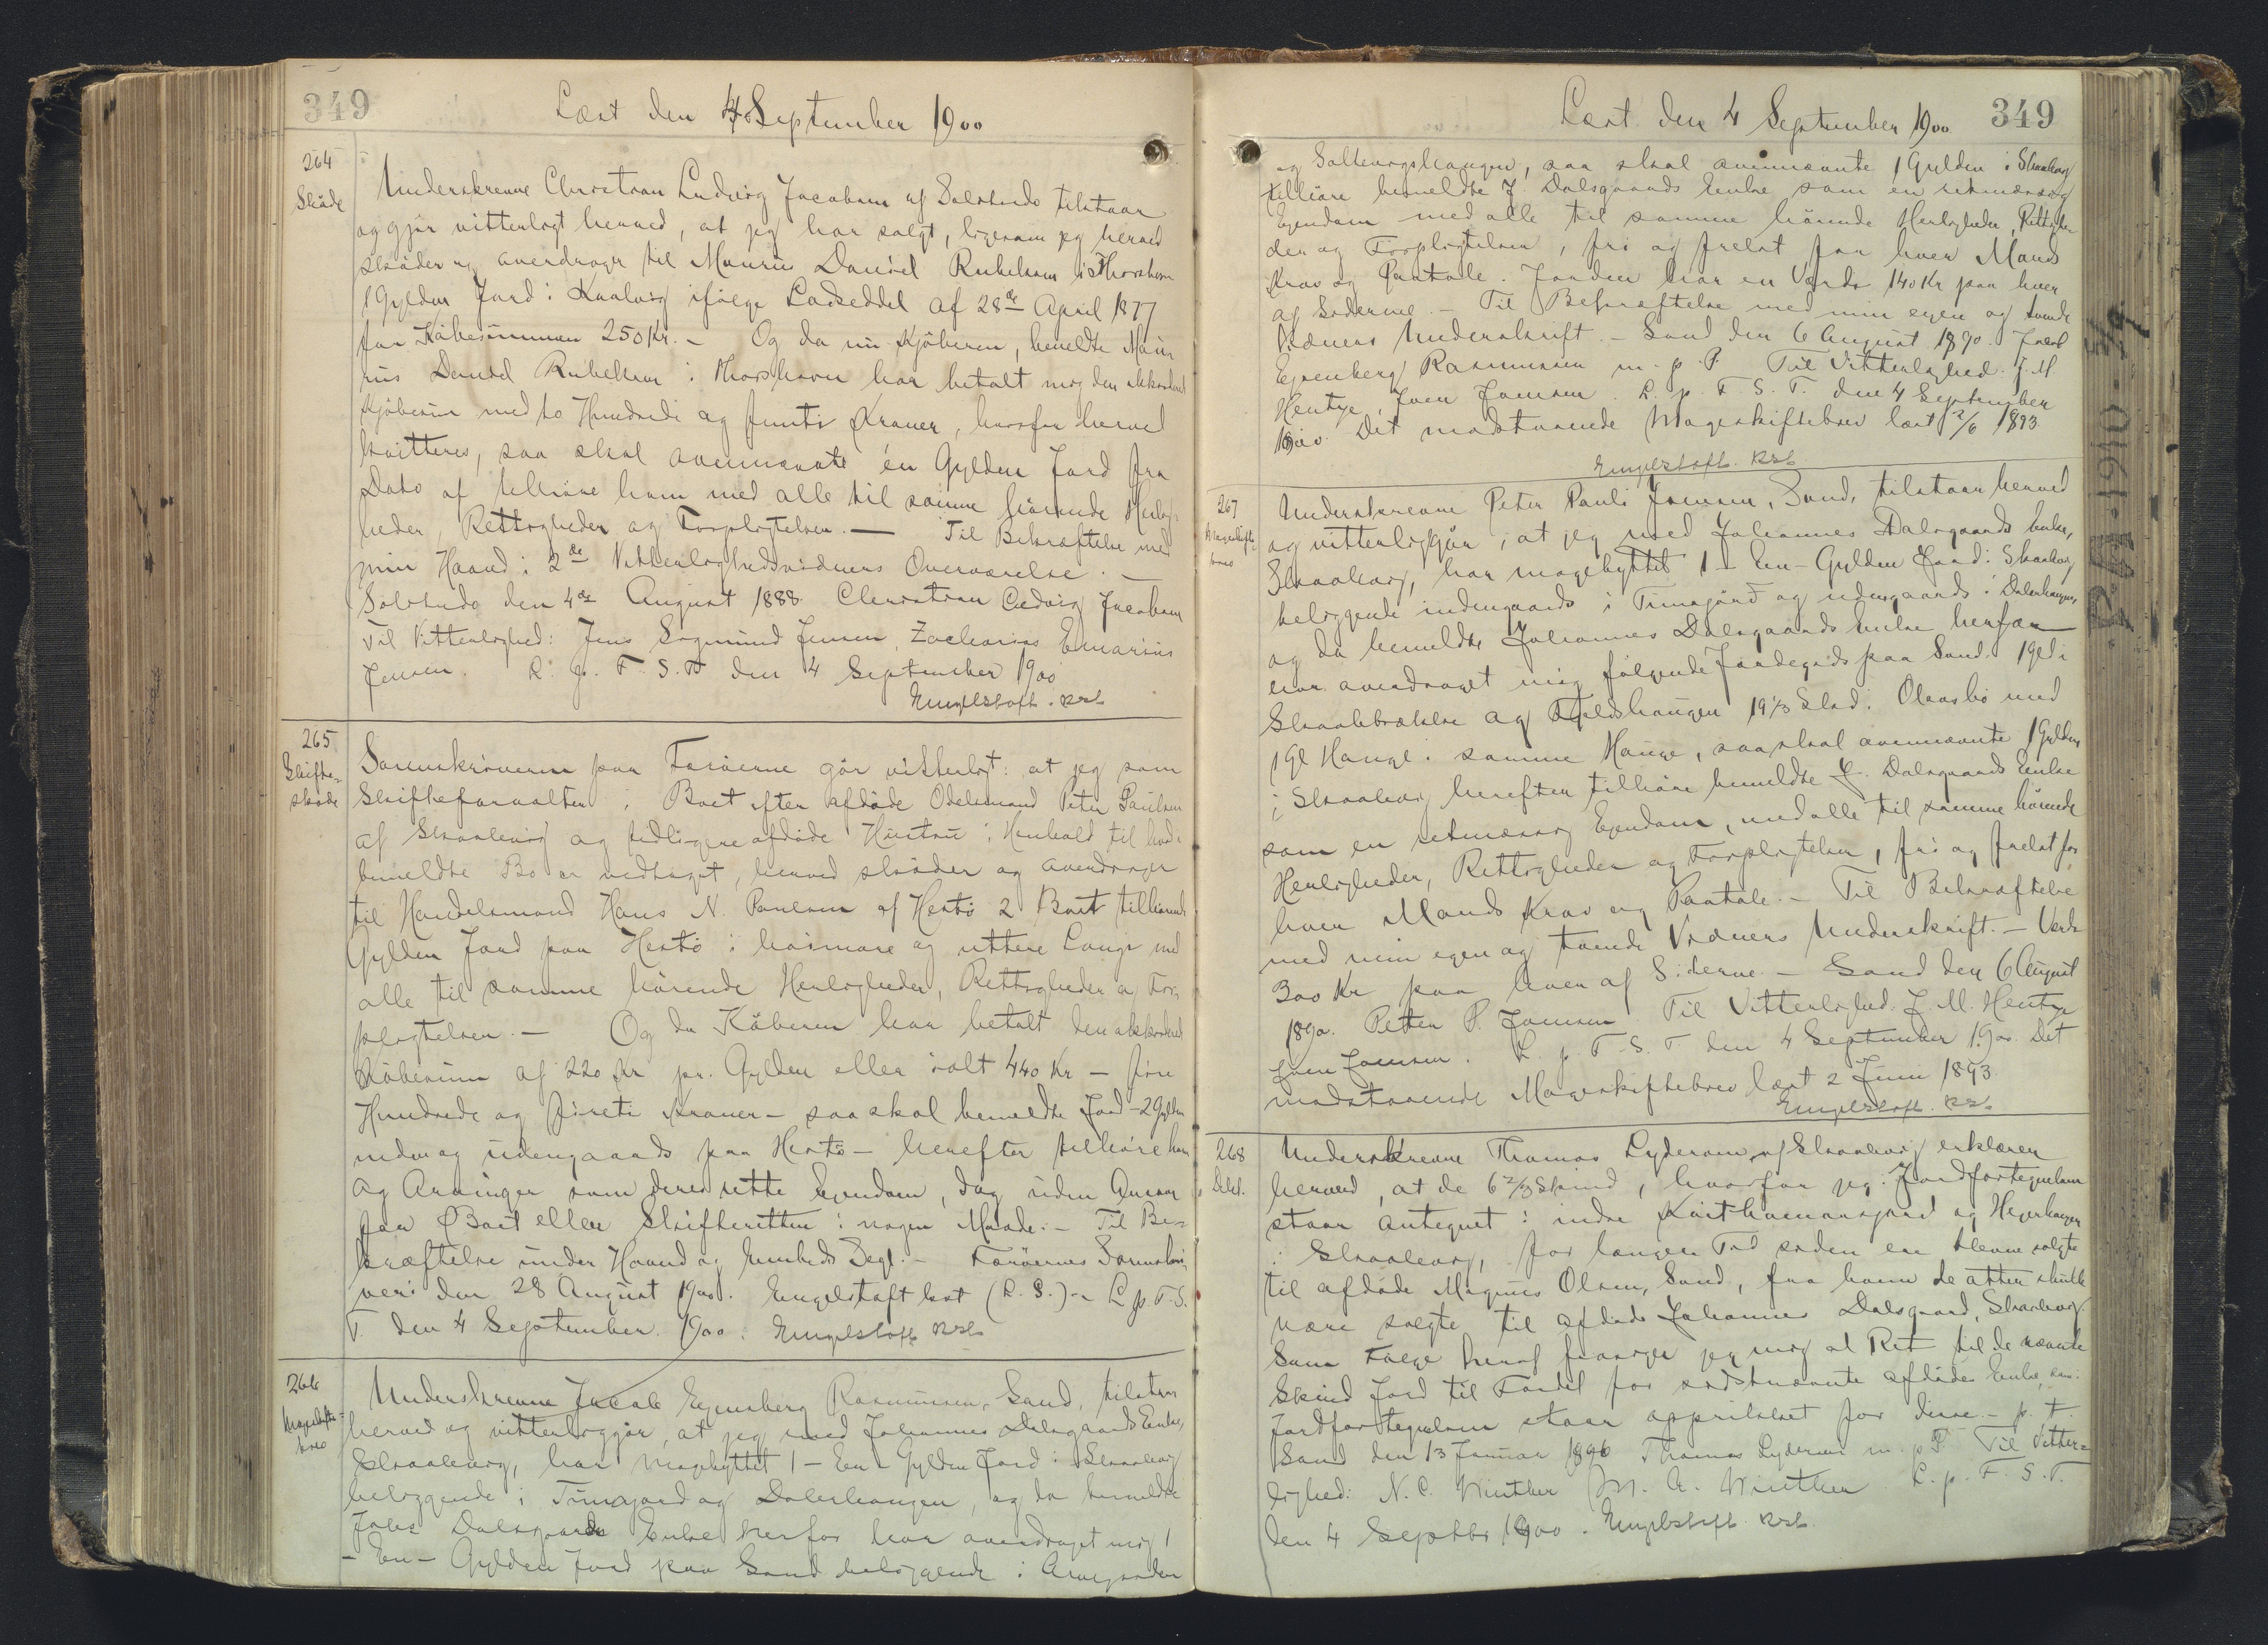 349
Læst den 4 September 1900
264
Skøde
Underskrevne Christian Ludvig Jacobsen af Solmunde tilstaar
og gjør vitterligt herved, at jeg har solgt, ligesom jeg herved
skøder og overdrager til Maurus Daniel Rubeksen i Thorshavn
1 Gylden Jord i Kaalvig ifølge Lodseddel af 28de April 1877
for Købesummen 250 Kr. - Og da nu Kjøberen, bemeldte Mau
rus Daniel Rubeksen i Thorshavn har betalt mig den akkorderede
Kjøbesum med to Hundrede og femti Kroner, hvorfor herved
kvitteres, saa skal ovennævnte én Gylden Jord fra
Dato af tilhøre ham med alle til samme hørende Herlig-
heder, Rettigheder og Forpligtelser. — Til Bekræftelse med
min Haand i 2de Vitterlighedsvidners Overværelse. —
den 4de August 1888. Christian Ludvig Jacobsen
Til Vitterlighed: Jens Sigmund Jensen, Zacharias Emarius
Jensen. L. p. F. S. T. den 4 September 1900
Engelstoft. kst
265
Skifte-
skøde
Sorenskriveren paa Færøerne gør vitterligt: at jeg som
Skifteforvalter i Boet efter afdøde Odelsmand Peter Paulsen
af Skaalevig og tidligere afdøde Hustru i Henhold til hvad i
bemeldte Bo er vedtaget, herved skøder og overdrager
til Handelsmand Hans N. Paulsen af Hestø 2 Boet tilhørende
Gylden Jord paa Hestø i heimare og uttere Lange med
alle til samme hørende Herligheder, Rettigheder og For-
pligtelser. — Og da Køberen har betalt den akkorderede
Købesum af 220 Kr pr. Gylden eller ialt 440 Kr — fire
Hundrede og fireti Kroner — saa skal bemeldte Jord - 2 Gylden
inden og udengaards paa Hestø — herefter tilhøre ham
og Arvinger som deres rette Ejendom, dog uden Ansvar
for Boet eller Skifteretten i nogen Maade. — Til Be-
kræftelse under Haand og Embeds Segl. — Færøernes Sorenskri-
veri den 28 August 1900. Engelstoft kst (L. S.) — L. p. F. S.
T. den 4 September 1900. Engelstoft kst
266
Mageskifte-
brev
Underskrevne Jacob Ejsenberg Rasmussen, Sand, tilstaar
herved og vitterliggjør, at jeg med Johannes Dalsgaards Enke,
Skaalevig, har magebyttet 1 - En - Gylden Jord i Skaalevig
beliggende i Tunsjord og Dalerhaugen, og da bemeldte
Johs Dalsgaards Enke herfor har overdraget mig 1
- En - Gylden Jord paa Sand beliggende i
Læst den 4 September 1900
349
og, saa skal ovennævnte 1 Gylden i Skaalevig
tilhøre bemeldte J. Dalsgaards Enke som en retmæssig
Ejendom med alle til samme hørende Herligheder, Rettighe-
der og Forpligtelser, fri og frelst for hver Mands
Krav og Paatale. Jorden har en Værdi 140 Kr paa hver
af Siderne. — Til Bekræftelse med min egen og tvende
Vidners Underskrift. — Sand den 6 August 1890. Jacob
Ejsenberg Rasmussen m. p. P. Til Vitterlighed: J. M.
Hentze, Joen Joensen. L. p. F. S. T. den 4 September
1900. Det modstaaende Mageskiftebrev læst 2/6 1893.
Engelstoft. kst
267
Mageskifte-
brev
Underskrevne Peter Pauli Joensen, Sand, tilstaar herved
og vitterliggjør, at jeg med Johannes Dalsgaards Enke,
Skaalevig, har magebyttet 1 - En - Gylden Jord i Skaalevig
beliggende indengaards i Tunsjørd og udengaards i Dalerhaugen,
og da bemeldte Johannes Dalsgaards Enke herfor
har overdraget mig følgende Jordegods paa Sand: 1 Gl i
og 19 1/3 Skd i Olansbø med
1 Gl Hauge i samme Hauge, saa skal ovennævnte 1 Gylden
i Skaalevig herefter tilhøre bemeldte J. Dalsgaards Enke
som en retmæssig Ejendom, med alle til samme hørende
Herligheder, Rettigheder og Forpligtelser, fri og frelst for
hver Mands Krav og Paatale. — Til Bekræftelse
med min egen og tvende Vidners Underskrift. — Værdi
300 Kr paa hver af Siderne. — Sand den 6 August
1890. Petter P. Joensen. Til Vitterlighed: J. M. Hentze
Joen Joensen. L. p. F. S. T. den 4 September 1900. Det
modstaaende Mageskiftebrev læst 2 Juni 1893.
Engelstoft. kst.
268
Dekl.
Underskrevne Thomas Lydersen af Skaalevig erklærer
herved, at de 6 2/3 Skind, hvorfor jeg i Jordfortegnelsen
staar antegnet i indre og
i Skaalevig, for længere Tid siden ere blevne solgte
til afdøde Magnus Olsen, Sand, fra hvem de atter skulle
være solgte til afdøde Johannes Dalsgaard, Skaalevig.
Som Følge heraf frasiger jeg mig al Ret til de nævnte
Skind Jord til Fordel for sidstnævnte afdødes Enke, som i
Jordfortegnelsen staar opskrevet for disse. — p. t.
Sand den 13 Januar 1896 Thomas Lydersen m. p. P. Til Vitter-
lighed: N. C. Winther M. A. Winther L. p. F. S. T.
den 4 Septbr 1900. Engelstoft kst.